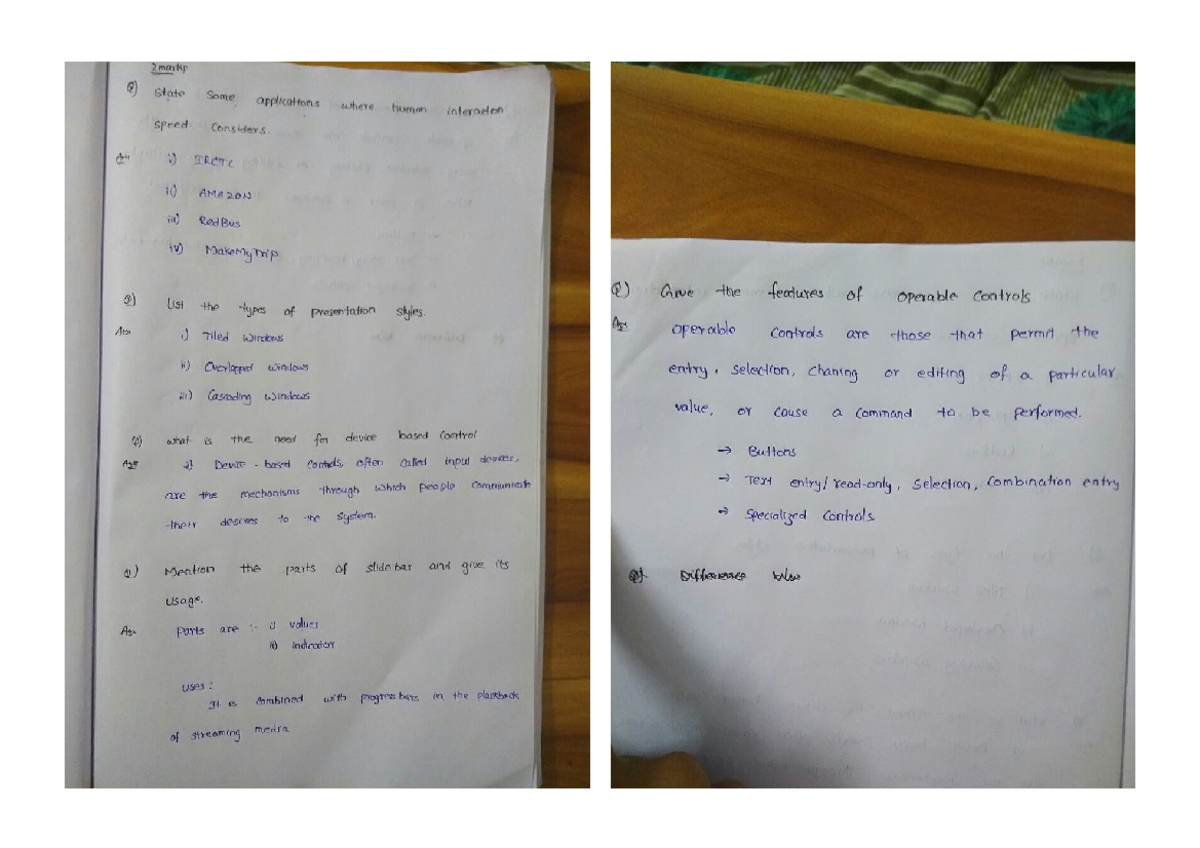 2 marks
Q) State some applications where human interaction
speed considers.
Ans i) IRCTC
ii) AMAZON
iii) RedBus
iv) MakeMyTrip
Q) List the types of presentation styles.
Ans i) Tiled Windows
ii) Overlapped windows
iii) Cascading Windows
Q) what is the need for device based control
Ans Device - based controls, often called input devices,
are the mechanisms through which people communicate
their desires to the system.
Q) Mention the parts of slide bar and give its
usage.
Ans parts are :- i) values
ii) indicator
uses :
It is combined with progressbars in the playback
of streaming media
Q) Give the features of operable controls
Ans operable controls are those that permit the
entry, selection, chaning or editing of a particular
value, or cause a command to be performed.
→ Buttons
→ Text entry/read-only, selection, combination entry
→ specialized controls
Q) Difference b/w